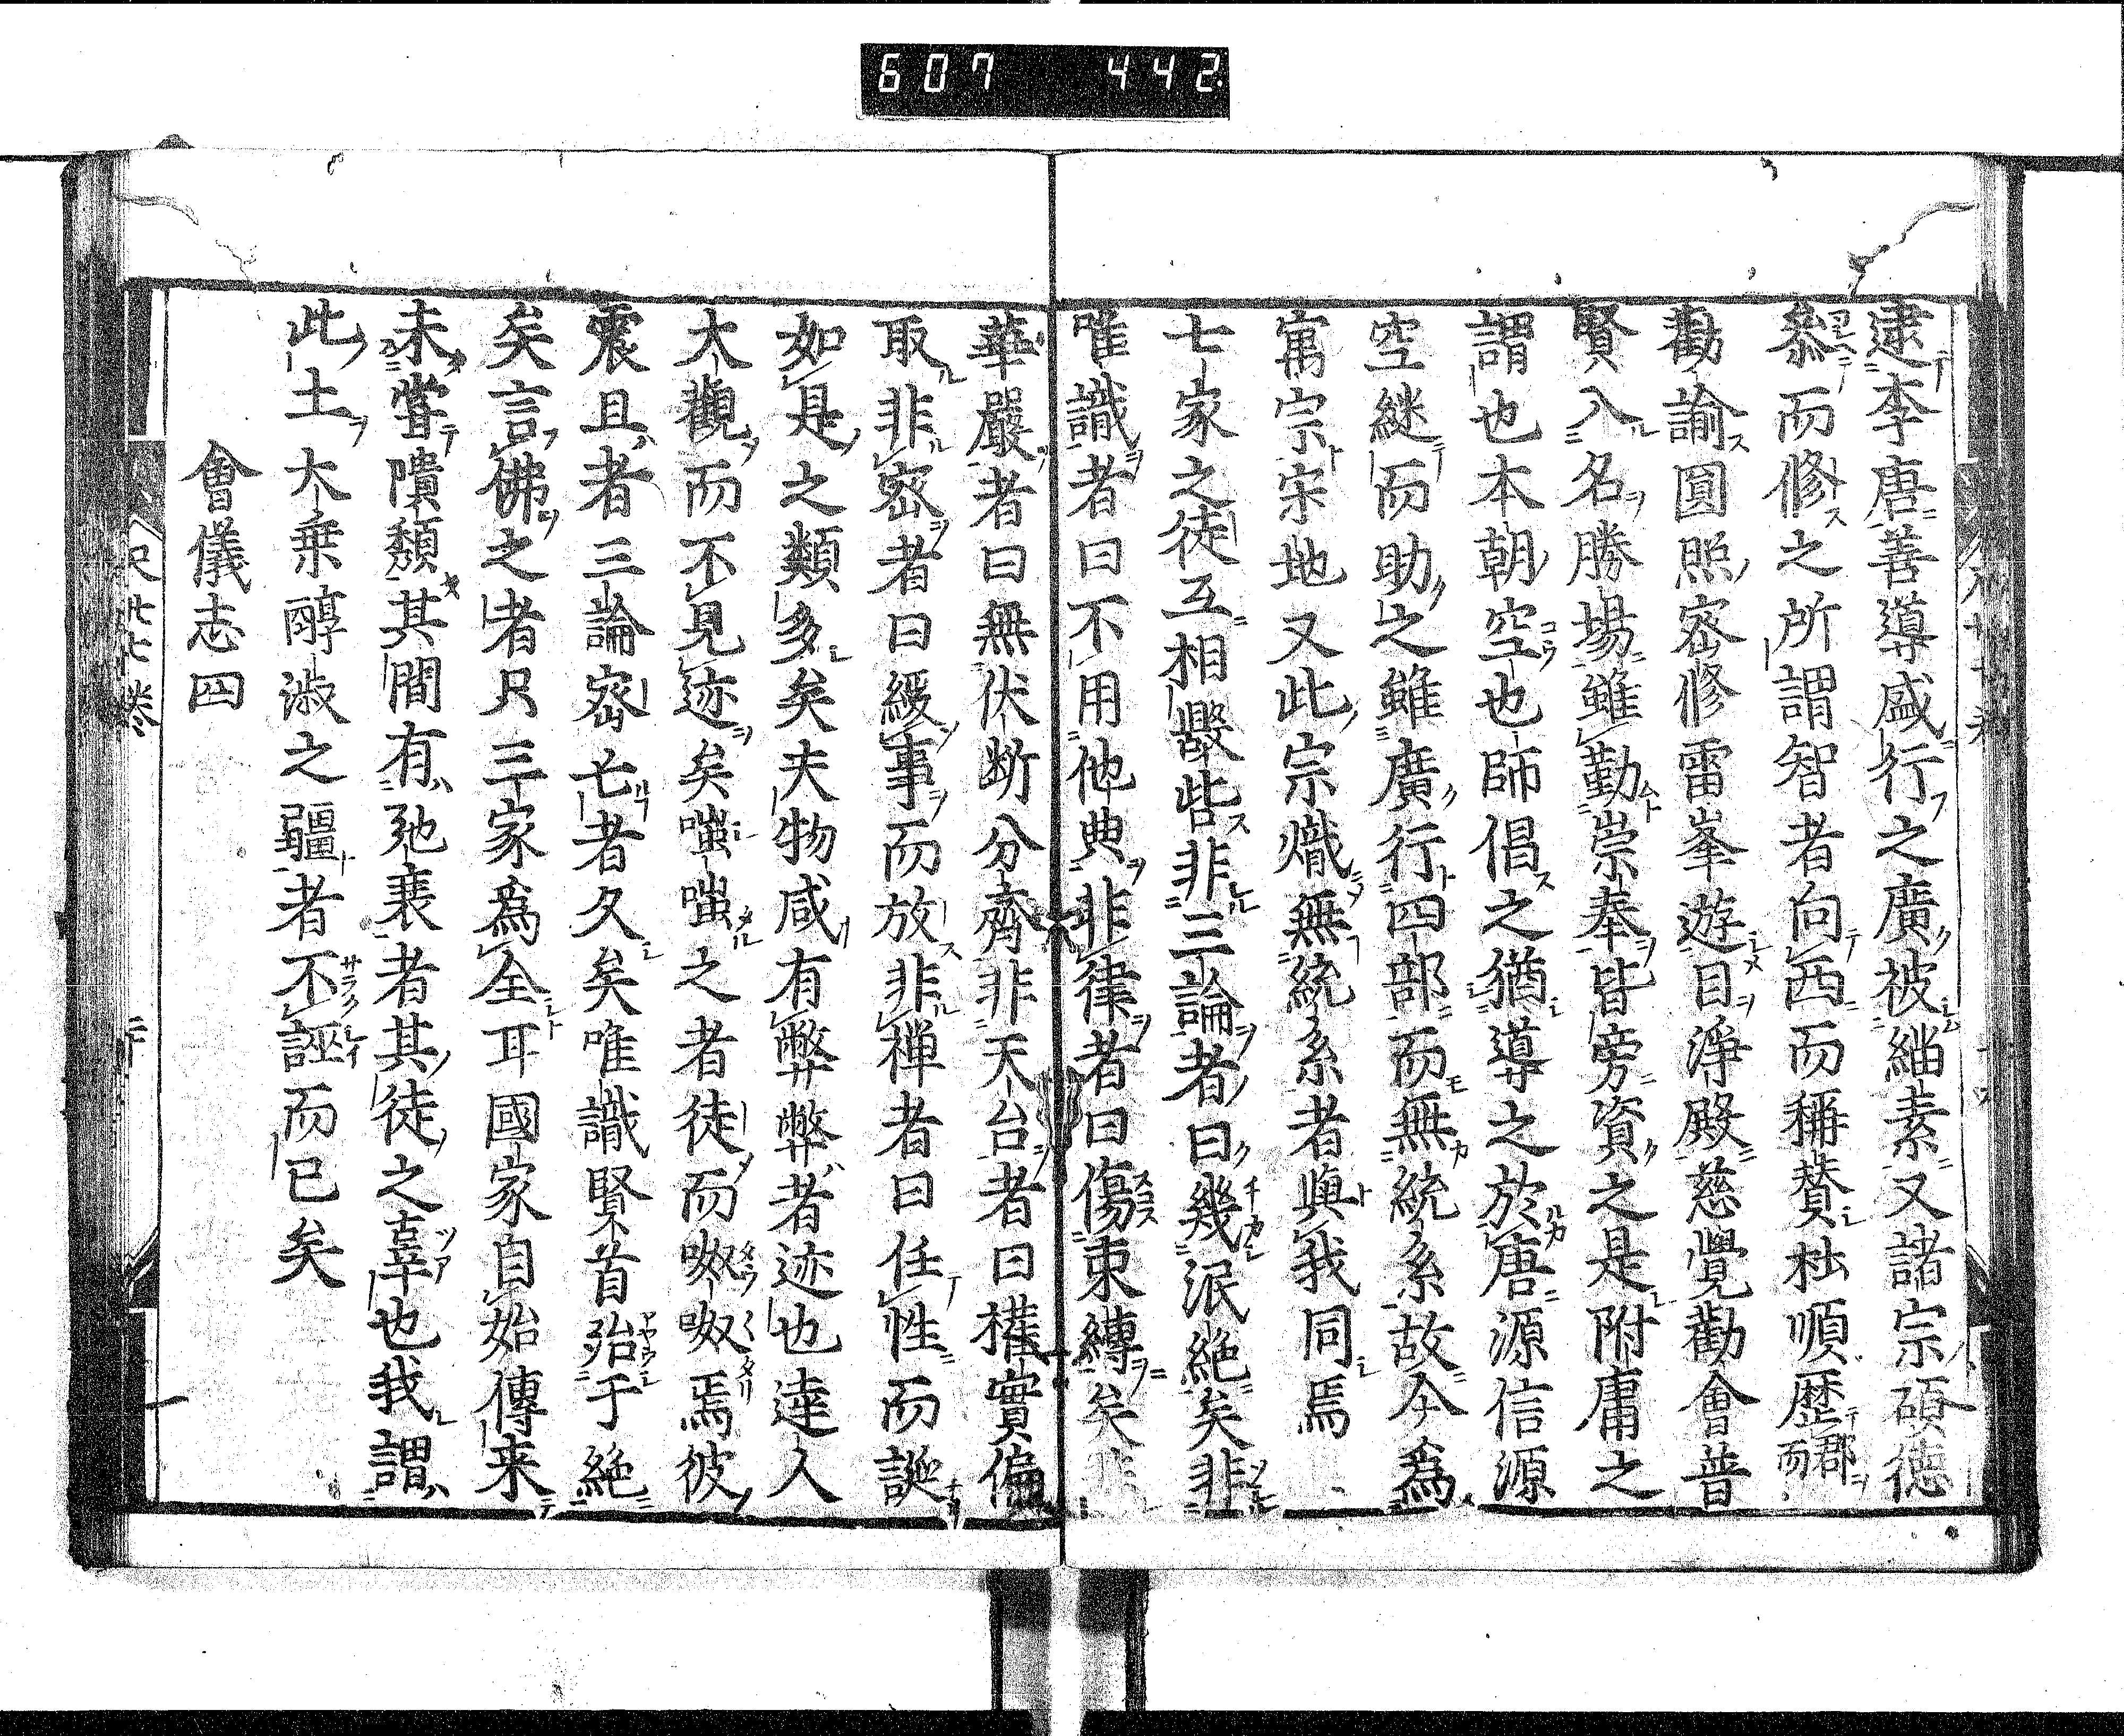 607 442
逮李唐善導盛行之廣被緇素又諸宗碩徳
忝而修之所謂智者向西而稱賛杜順歷郡而
勸諭圓照密修雷峯遊目淨殿慈覺勸會普
賢入名勝場雖勤崇奉皆旁資之是附庸之
謂也本朝空也師倡之猶導之於唐源信源
空繼而助之雖廣行四部而無統系故今爲
寓宗宋地又此宗熾無統系者與我同焉
七家之徒互相毀呰非三論者曰幾泯絶矣非
唯識者曰不用他典非律者曰傷束縛矣非
華嚴者曰無伏斷分齊非天台者曰權實偏
取非密者曰緩事而放非禅者曰任性而誕
如是之類多矣夫物咸有弊弊者迹也達人
大觀而不見迹矣嗤嗤之者徒而呶呶焉彼
震旦者三論密亡者久矣唯識賢首殆于絶
矣言佛之者只三家爲全耳國家自始傳来
未嘗隤頽其間有弛衰者其徒之辜也我謂
此土大乗醇淑之疆者不誣而已矣
會儀志四
尺廿七巻